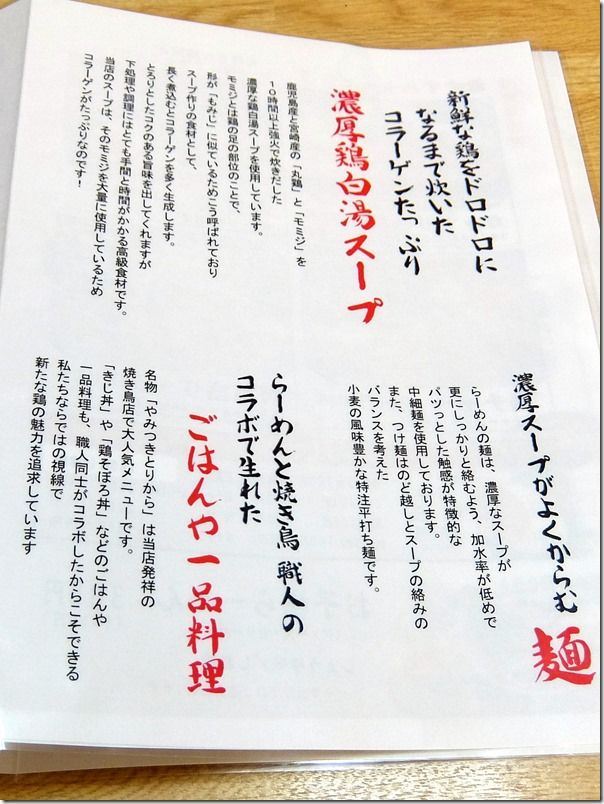 新鮮な鶏をドロドロに
なるまで炊いた
コラーゲンたっぷり
濃厚鶏白湯スープ
鹿児島産と宮崎産の「丸鶏」と「モミジ」を
10時間以上強火で炊きだした
濃厚な鶏白湯スープを使用しています。
モミジとは鶏の足の部位のことで、
形が「もみじ」に似ているためこう呼ばれており
スープ作りの食材として、
長く煮込むとコラーゲンを多く生成します。
とろりとしたコクのある旨味を出してくれますが
下処理や調理にはとても手間と時間がかかる高級食材です。
当店のスープは、そのモミジを大量に使用しているため
コラーゲンがたっぷりなのです!
濃厚スープがよくからむ
麺
らーめんの麺は、濃厚なスープが
更にしっかりと絡むよう、加水率が低めで
パツッとした触感が特徴的な
中細麺を使用しております。
また、つけ麺はのど越しとスープの絡みの
バランスを考えた
小麦の風味豊かな特注平打ち麺です。
らーめんと焼き鳥 職人の
コラボで生れた
ごはんや一品料理
名物「やみつきとりから」は当店発祥の
焼き鳥店で大人気メニューです。
「きじ丼」や「鶏そぼろ丼」などのごはんや
一品料理も、職人同士がコラボしたからこそできる
私たちならではの視線で
新たな鶏の魅力を追求しています